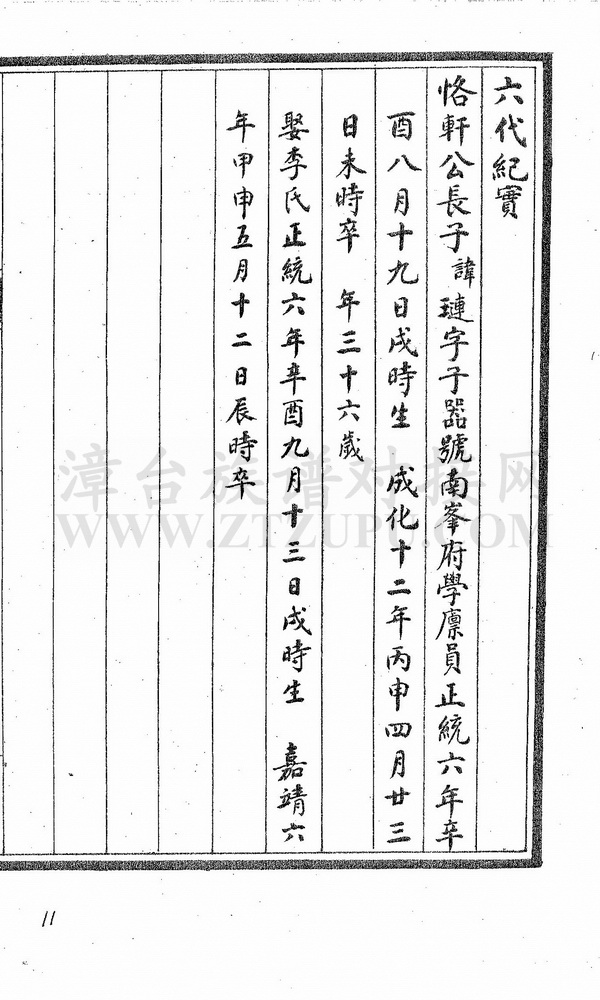 六代紀實
恪軒公長子諱璉字子器號南峯府學廪員正統六年辛
酉八月十九日戌時生 成化十二年丙申四月廿三
日未時卒 年三十六歲
娶李氏正統六年辛酉九月十三日戌時生 嘉靖六
年甲申五月十二日辰時卒
漳台族谱对接网
WWW.ZTZUPU.COM
11